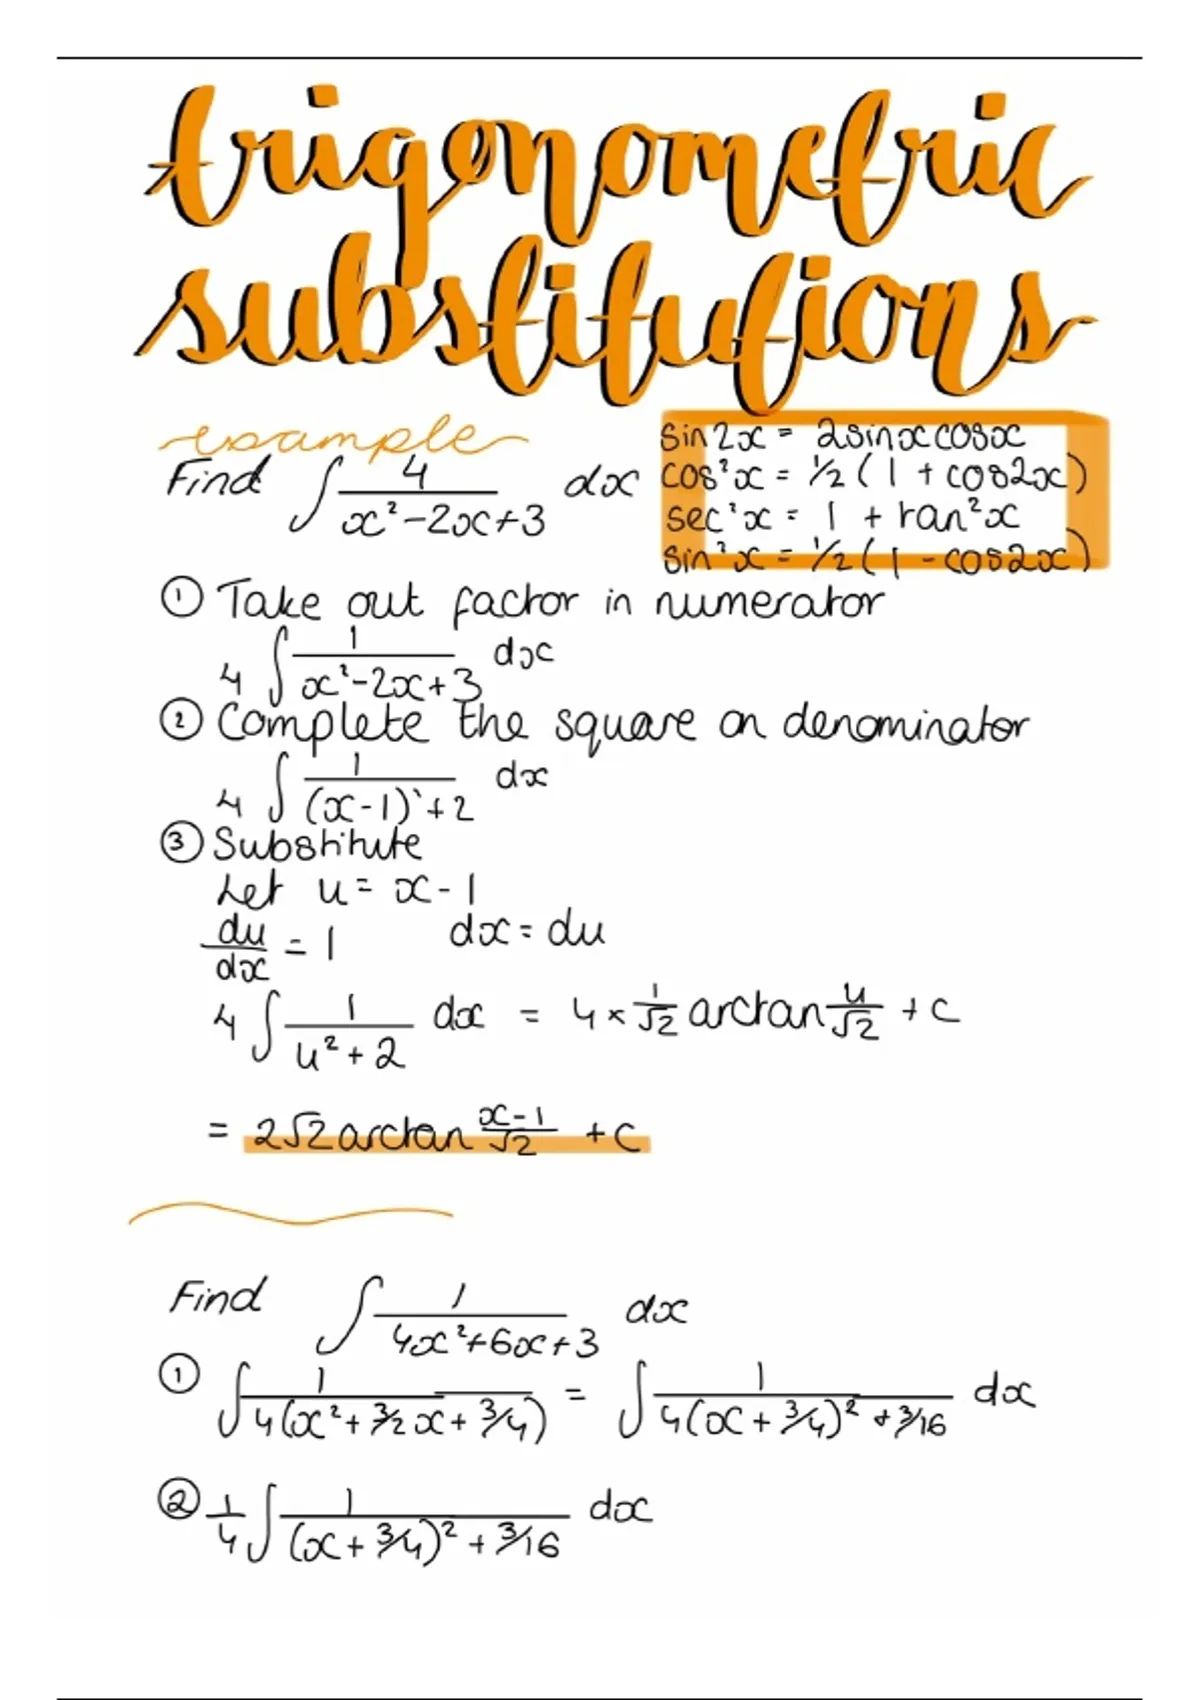 trigonometric
substitutions
example
sin2x = 2sinxcosx
cos²x = ½(1 + cos2x)
sec²x = 1 + tan²x
sin²x = ½(1 - cos2x)
Find ∫ 4/(x²-2x+3) dx
① Take out factor in numerator
4 ∫ 1/(x²-2x+3) dx
② Complete the square on denominator
4 ∫ 1/((x-1)²+2) dx
③ Substitute
Let u = x-1
du/dx = 1 dx = du
4 ∫ 1/(u²+2) dx = 4 × 1/√2 arctan u/√2 + c
= 2√2 arctan (x-1)/√2 + c
Find ∫ 1/(4x²+6x+3) dx
① ∫ 1/(4(x²+3/2x+3/4)) = ∫ 1/(4(x+3/4)²+3/16) dx
② 1/4 ∫ 1/((x+3/4)²+3/16) dx